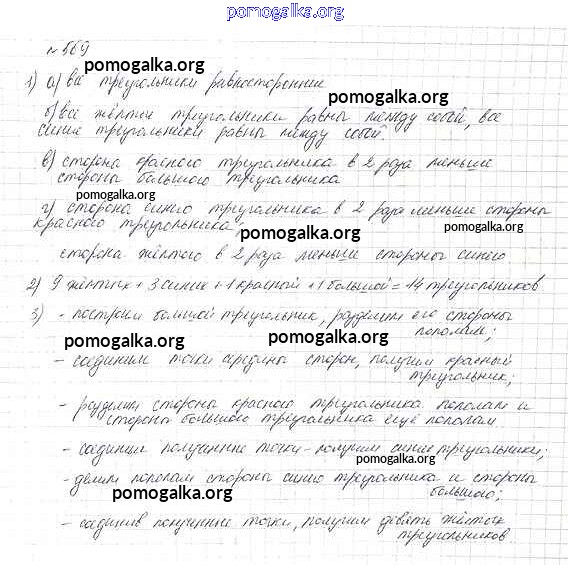 pomogalka.org
№569
pomogalka.org
1) а) все треугольники равносторонние
pomogalka.org
б) все жёлтые триугольники равны между собой, все
синие триугольники равны между собой.
pomogalka.org
в) сторона красного триугольника в 2 раза меньше
стороны большого треугольника
pomogalka.org
г) сторона синего треугольника в 2 раза меньше стороны
красного триугольника,
pomogalka.org
pomogalka.org
сторона жёлтого в 2 раза меньше стороны синего
2) 9 жёлтых + 3 синих + 1 красный + 1 большой = 14 треугольников
3) - построим большой треугольник, разделим его стороны
пополам;
pomogalka.org pomogalka.org
- соединим точки середины сторон, получим красный
триугольник;
- разделим стороны красного треугольника пополам и
стороны большого триугольника ещё пополам.
- соединим полученные точки - получим синие триугольники;
pomogalka.org
- делим пополам стороны синего триугольника и стороны
большого;
pomogalka.org
- соединив полученные точки, получим девять жёлтых
триугольников